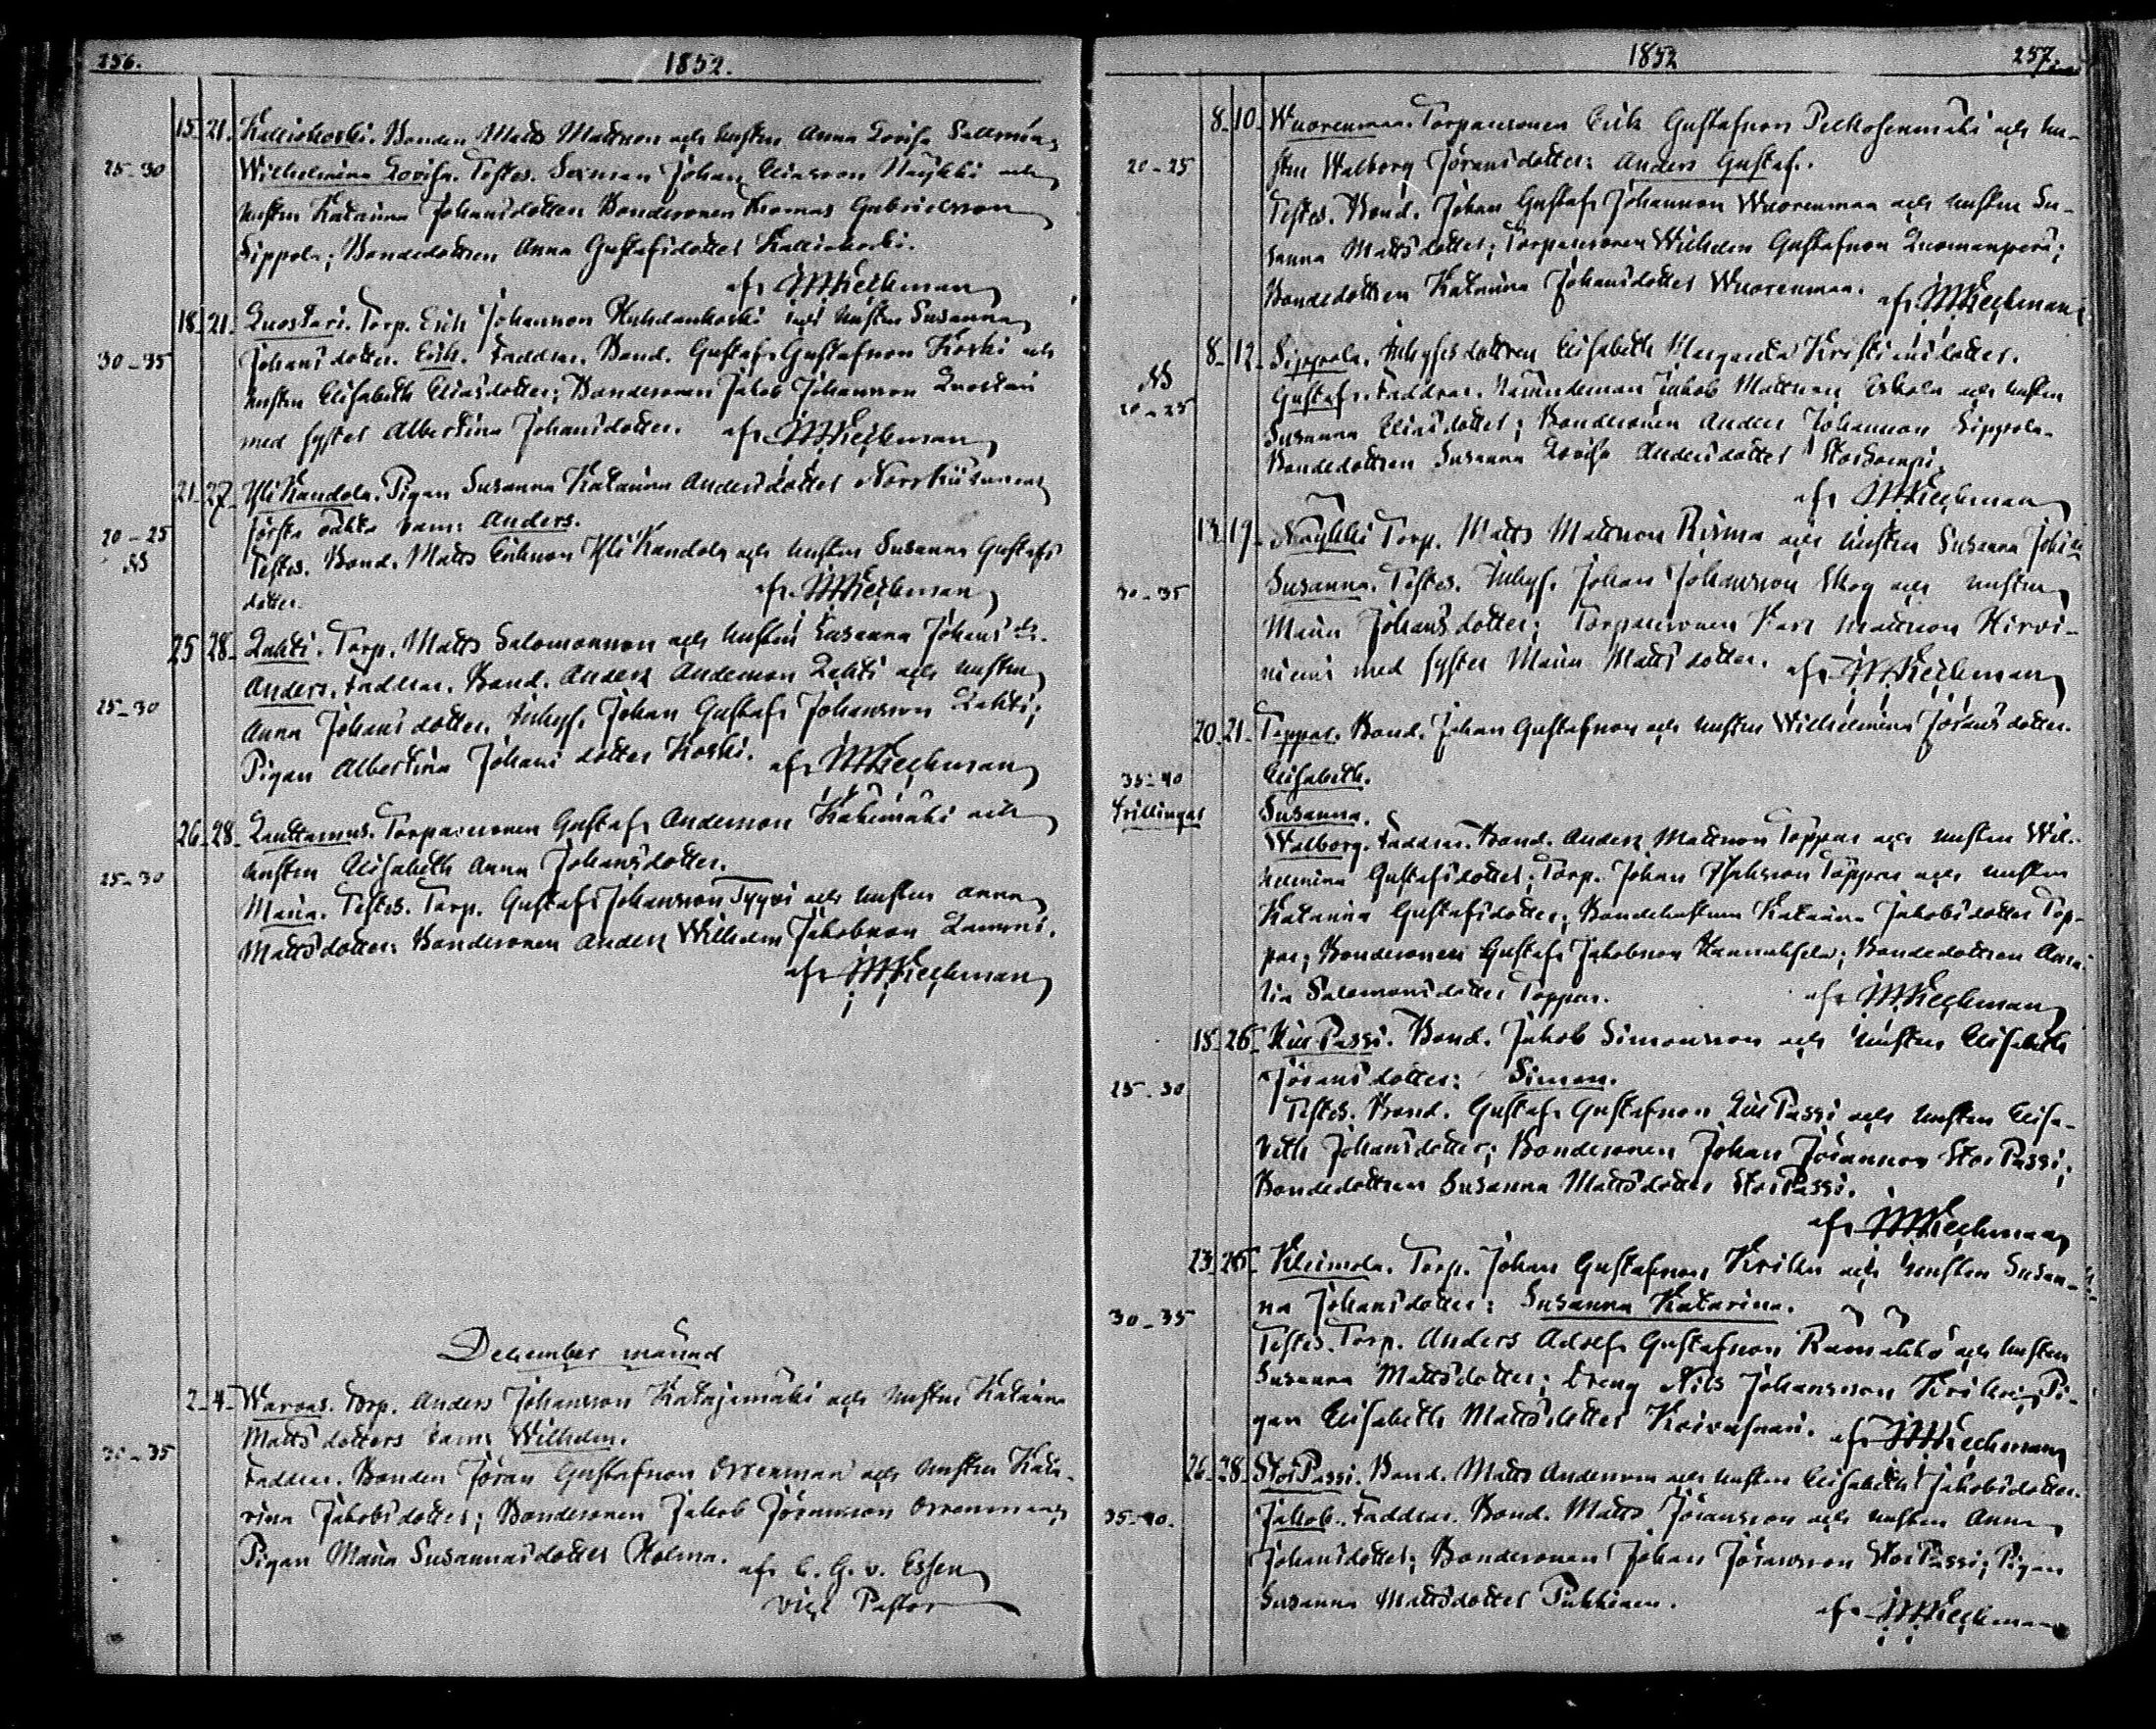 256.
1852.
15 21. Kalliokoski. Bonden Matts Mattsson och hustru Anna Lovisa Sallmén,
25-30 Wilhelmina Lovisa. Testes. Sexman Johan Eliasson Näykki och
hustru Katarina Johansdotter Bondesonen Thomas Gabrielsson
Sippola; Bondedottren Anna Gustafsdotter Kalliokoski.
af
18 21. Luostari. Torp. Erik Johansson Huhdankoski och hustru Susanna
30-35 Johansdotter. Erik. Faddrar. Bond. Gustaf Gustafsson Koski och
hustru Elisabeth Eliasdotter; Bondesonen Jakob Johansson Luostari
med syster Albertina Johansdotter. af
21 27. Yli Kandola. Pigan Susanna Katarina Andersdotter
20-25 första oäkta barn: Anders.
Testes. Bond. Matts Eriksson Yli Kandola och hustru Susanna Gustafs
dotter. af
25 28. Lahti. Torp. Matts Salomonsson och hustru Susanna Johansdr.
Anders. Faddrar. Bond. Anders Andersson Lahti och hustru
25-30 Anna Johansdotter. Inhys. Johan Gustaf Johansson Lahti;
Pigan Albertina Johansdotter Koski. af
26 28. Lauttamus. Torparesonen Gustaf Andersson Kakimäki och
25-30 hustru Elisabeth Anna Johansdotter.
Maria. Testes. Torp. Gustaf Johansson Tyyri och hustru Anna
Mattsdotter: Bondesonen Anders Wilhelm Jakobsson Lammi.
af
December månad
2 4 Warvas. Torp. Anders Johansson Katajamäki och hustru Katarina
Mattsdotters barn: Wilhelm.
30-35 Faddrar. Bonden Jöran Gustafsson Orrenmaa och hustru Kata-
rina Jakobsdotter; Bondesonen Jakob Jöransson Orrenmaa
Pigan Maria Susannasdotter Holma. af C. G. v. Essen
Vice Pastor
1852
257.
8 10 Wuorenmaa. Torparesonen Erik Gustafsson Peltosenmäki och hu-
20-25 stru Walborg Jöransdotter: Anders Gustaf.
Testes. Bond. Johan Gustaf Johansson Wuorenmaa och hustru Su-
sanna Mattsdotter; Torparesonen Wilhelm Gustafsson Luomanperä;
Bondedottren Katarina Johansdotter Wuorenmaa. af
8 12 Sippola. Inhysesdottren Elisabeth Margareta Kristiansdotter.
20-25 Gustaf. Faddrar. Nämndeman Jakob Mattsson Eskola och hustru
Susanna Eliasdotter; Bondesonen Anders Johansson Sippola
Bondedottren Susanna Lovisa Andersdotter
af
13 19 Näykki Torp. Matts Mattsson Risma och hustru Susanna
30-35 Susanna. Testes. Inhys. Johan Johansson Skog och hustru
Maria Johansdotter; Torparesonen Karl Mattsson Hirvi-
niemi med syster Maria Mattsdotter. af
20 21 Toppar. Bond. Johan Gustafsson och hustru Wilhelmina Jöransdotter.
35-40 Elisabeth.
Trillingar Susanna.
Walborg. Faddrar. Bond. Anders Mattsson Toppar och hustru Wil-
helmina Gustafsdotter; Torp. Johan Isaksson Toppar och hustru
Katarina Gustafsdotter; Bondehustrun Katarina Jakobsdotter Top-
par; Bondesonen Gustaf Jakobsson Hannuksela; Bondedottren Ama-
lia Salomonsdotter Toppar. af
18 26 Lill Passi. Bond. Jakob Simonsson och hustru Elisabeth
25-30 Jöransdotter: Simon.
Testes. Bond. Gustaf Gustafsson Lill Passi och hustru Elisa-
beth Johansdotter; Bondesonen Johan Jöransson Stor Passi;
Bondedottren Susanna Mattsdotter Stor Passi.
af
23 26 Kleimola. Torp. Johan Gustafsson Kriku och hustru Susan-
30-35 na Johansdotter: Susanna Katarina.
Testes. Torp. Anders Adolf Gustafsson Rämäkkö och hustru
Susanna Mattsdotter; Dreng Nils Johansson Kriku; Pi-
gan Elisabeth Mattsdotter af
26 28 Stor Passi. Bond. Matts Andersson och hustru Elisabeth Jakobsdotter.
35-40. Jakob. Faddrar. Bond. Matts Jöransson och hustru Anna
Johansdotter; Bondesonen Johan Jöransson Stor Passi; Pigan
Susanna Mattsdotter Pukkinen. af